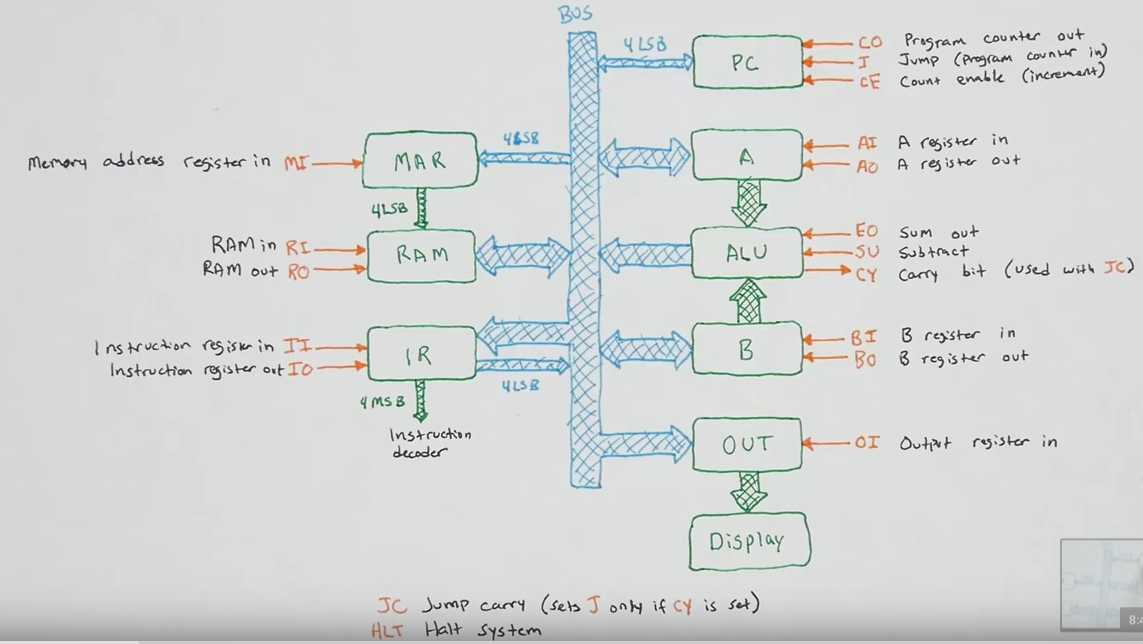 BUS
4 LSB
PC
CO Program counter out
J Jump (program counter in)
CE Count enable (increment)
Memory address register in MI
MAR
4LSB
A
AI A register in
AO A register out
4LSB
RAM in RI
RAM out RO
RAM
ALU
EO Sum out
SU Subtract
CY Carry bit (used with JC)
Instruction register in II
Instruction register out IO
IR
4LSB
B
BI B register in
BO B register out
4MSB
Instruction
decoder
OUT
OI Output register in
Display
JC Jump carry (sets J only if CY is set)
HLT Halt system